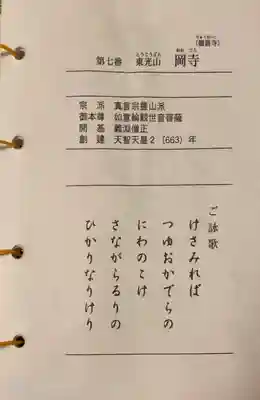 (龍蓋寺)
りゅうがいじ
第七番 東光山 岡寺
とうこうざん おか でら
宗派 真言宗豊山派
御本尊 如意輪観世音菩薩
開基 義淵僧正
創建 天智天皇2〔663〕年
ご詠歌
けさみれば
つゆおかでらの
にわのこけ
さながらるりの
ひかりなりけり